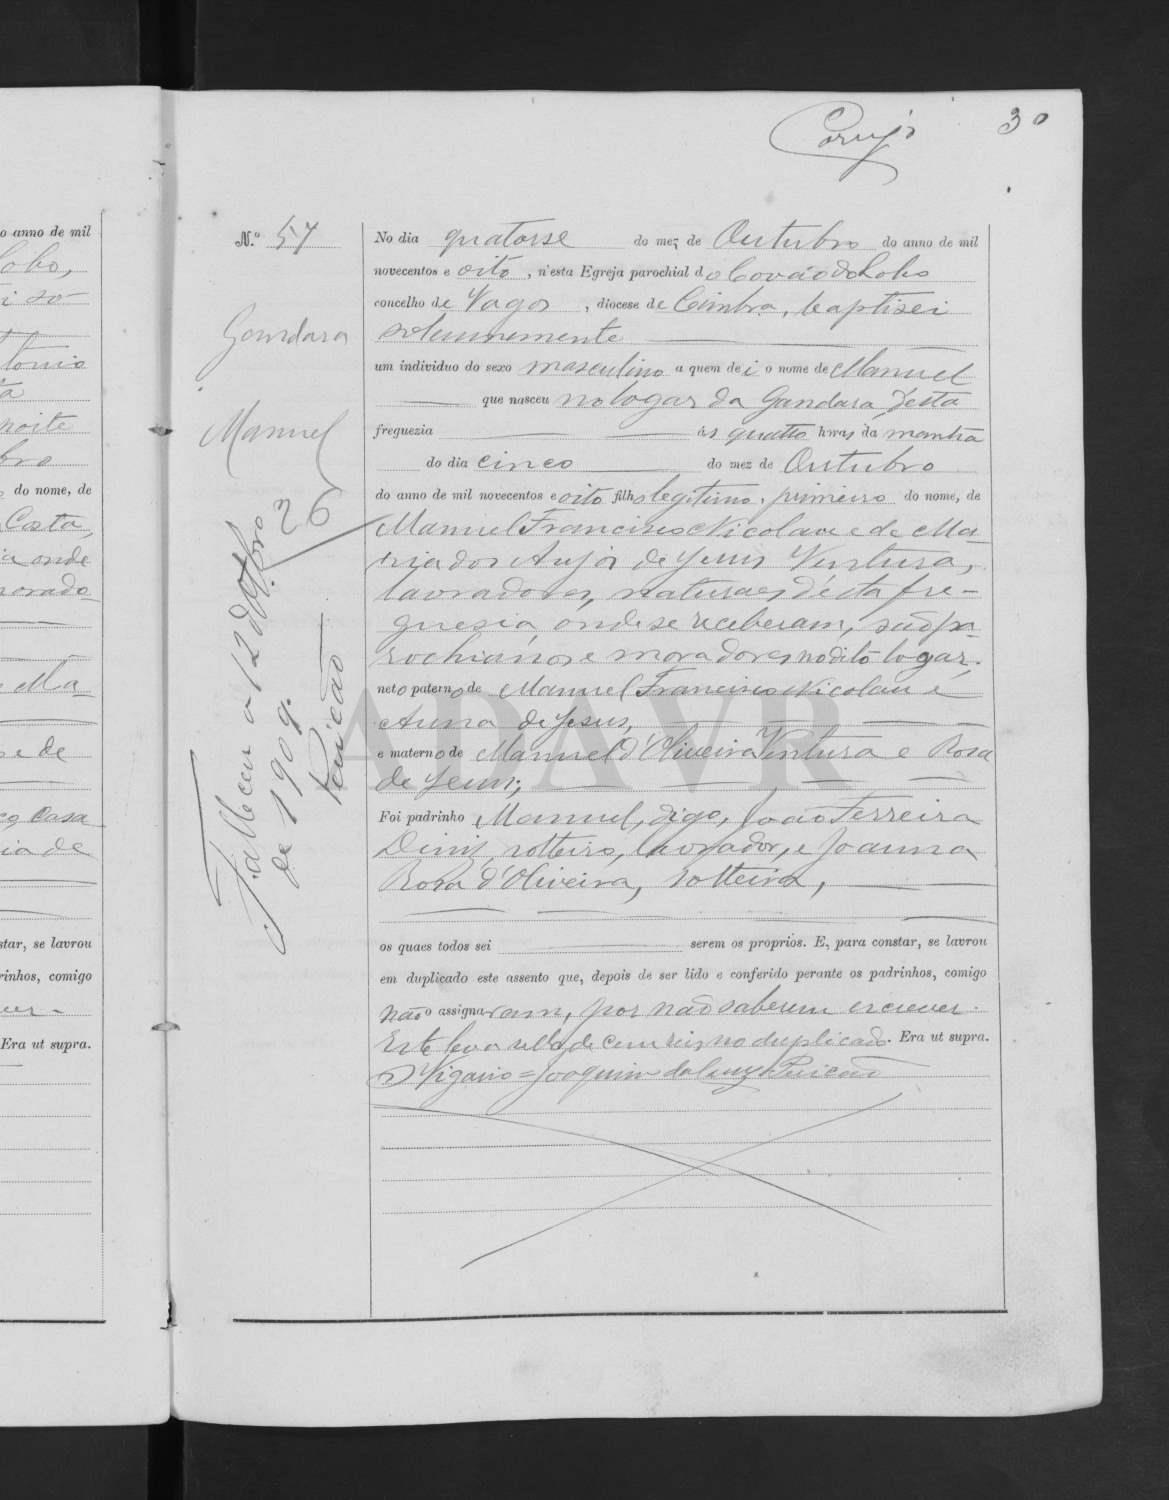 30
N.º 57
Gandara
Manuel
26
Falleceu a 12 d'Outbro
de 1909.
No dia quatorse do mez de Outubro do anno de mil
novecentos e oito, n'esta Egreja parochial do Covão do Lobo
concelho de Vagos, diocese de Coimbra, baptisei
solemnemente
um individuo do sexo masculino a quem dei o nome de Manuel
que nasceu no logar da Gandara d'esta
freguezia ás quatro horas da manhã
do dia cinco do mez de Outubro
do anno de mil novecentos e oito filho legitimo, primeiro do nome, de
Manuel Francisco Nicolau e de Ma-
ria dos Anjos de Jesus Ventura,
lavradores, naturaes d'esta fre-
guesia, onde se receberam, são pa-
rochianos e moradores no dito logar,
neto paterno de Manuel Francisco Nicolau e
Anna de Jesus,
e materno de Manuel d'Oliveira Ventura e Rosa
de Jesus;
Foi padrinho Manuel, digo, João Ferreira
Diniz, solteiro, lavrador, e Joanna
Rosa d'Oliveira, solteira,
os quaes todos sei serem os proprios. E, para constar, se lavrou
em duplicado este assento que, depois de ser lido e conferido perante os padrinhos, comigo
não o assignaram, por não saberem escrever.
Este leva sello de cem reis no duplicado. Era ut supra.
O Vigario = Joaquim da Luz
ADAVR
o anno de mil
Lobo,
tonio
noite
bro
do nome, de
Costa,
ia onde
morado-
Ma-
e de
casa
ia de
star, se lavrou
rinhos, comigo
Era ut supra.